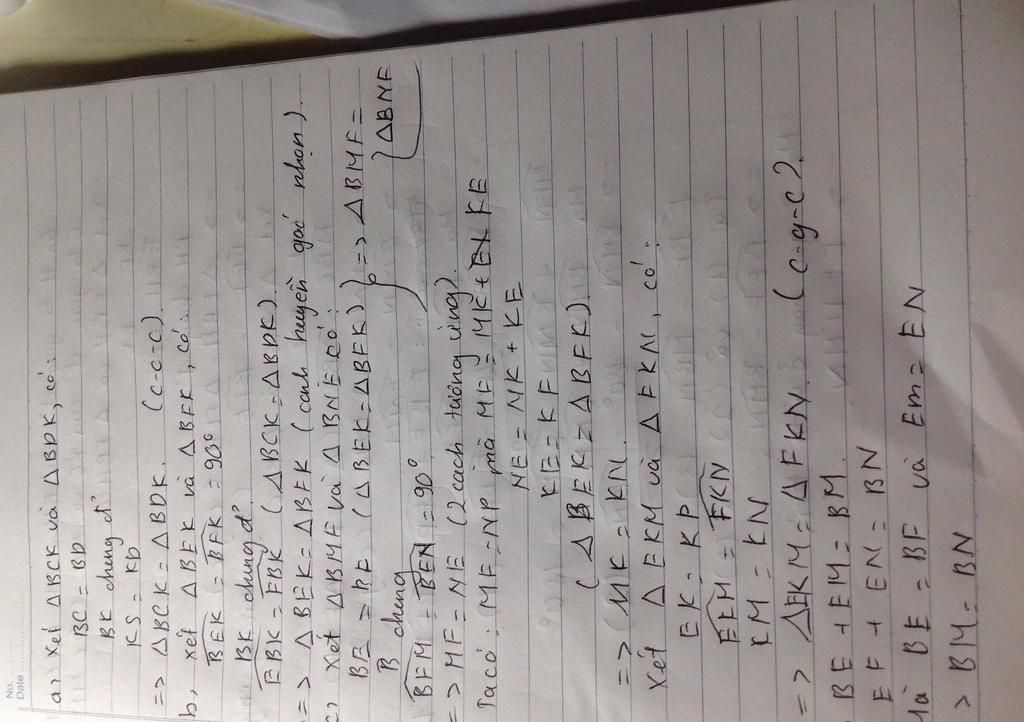 No.
Date
a, xét ΔBCK và ΔBDK, có:
BC = BD
BK chung đ
KS = KD
=> ΔBCK = ΔBDK. (c-c-c).
b, xét ΔBEK và ΔBFK, có:
BEK = BFK = 90°
BK chung đ
EBK = FBK (ΔBCK = ΔBDK).
=> ΔBEK = ΔBFK (cạnh huyền góc nhọn).
c, xét ΔBMF và ΔBNE có:
BE = BE (ΔBEK = ΔBFK) } => ΔBMF = ΔBNE
B chung
BFM = BEN = 90°
=> MF = NE (2 cạch tương ứng).
Ta có: MF = NP mà MF = MK + KE
NE = NK + KE
KE = KF
(ΔBEK = ΔBFK)
=> MK = KN.
Xét ΔEKM và ΔFKN, có:
EK = KP
EKM = FKN
KM = KN
=> ΔEKM = ΔFKN. (c-g-c).
BE + EM = BM.
EF + EN = BN
Mà BE = BF và Em = EN
> BM = BN